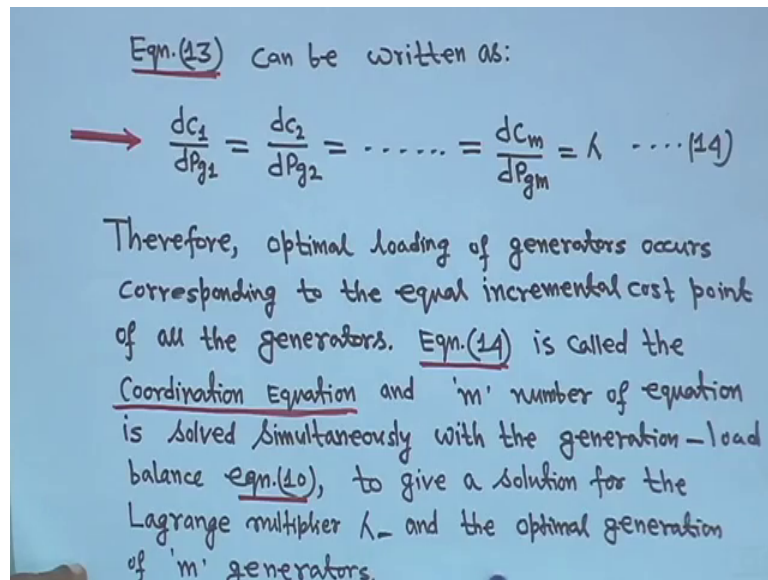 Eqn.(13) can be written as:
dC1/dPg1 = dC2/dPg2 = ...... = dCm/dPgm = λ ....(14)
Therefore, optimal loading of generators occurs
corresponding to the equal incremental cost point
of all the generators. Eqn.(14) is called the
Coordination Equation and 'm' number of equation
is solved simultaneously with the generation-load
balance eqn.(10), to give a solution for the
Lagrange multiplier λ- and the optimal generation
of 'm' generators.